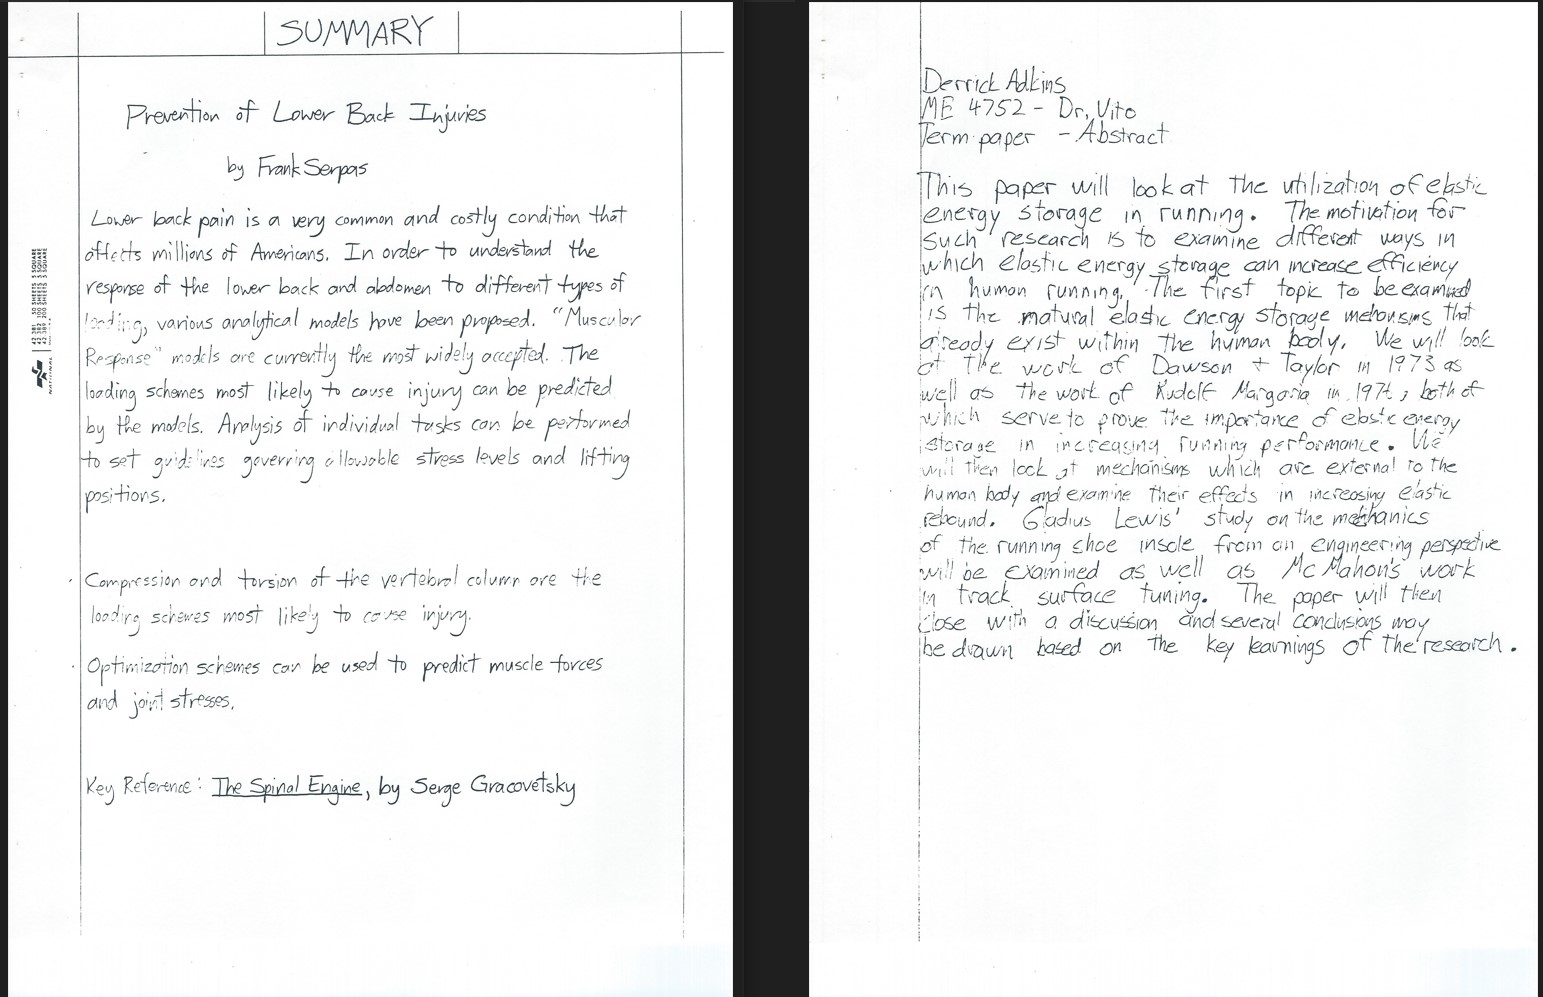 SUMMARY
Prevention of Lower Back Injuries
by Frank Serpas
Lower back pain is a very common and costly condition that
affects millions of Americans. In order to understand the
response of the lower back and abdomen to different types of
loading, various analytical models have been proposed. "Muscular
Response" models are currently the most widely accepted. The
loading schemes most likely to cause injury can be predicted
by the models. Analysis of individual tasks can be performed
to set guidelines governing allowable stress levels and lifting
positions.
· Compression and torsion of the vertebral column are the
loading schemes most likely to cause injury.
· Optimization schemes can be used to predict muscle forces
and joint stresses.
Key Reference: The Spinal Engine, by Serge Gracovetsky
42.381 50 SHEETS 5 SQUARE
42.382 100 SHEETS 5 SQUARE
42.389 200 SHEETS 5 SQUARE
NATIONAL
Derrick Adkins
ME 4752 - Dr. Vito
Term paper - Abstract
This paper will look at the utilization of elastic
energy storage in running. The motivation for
such research is to examine different ways in
which elastic energy storage can increase efficiency
in human running. The first topic to be examined
is the natural elastic energy storage mehonisms that
already exist within the human body. We will look
at the work of Dawson + Taylor in 1973 as
well as the work of Rudolf Margaria in, both of
which serve to prove the importance of elastic energy
storage in increasing running performance. We
will then look at mechanisms which are external to the
human body and examine their effects in increasing elastic
rebound. Gladius Lewis' study on the mechanics
of the running shoe insole from an engineering perspective
will be examined as well as McMahon's work
in track surface tuning. The paper will then
close with a discussion and several conclusions may
be drawn based on the key learnings of the research.